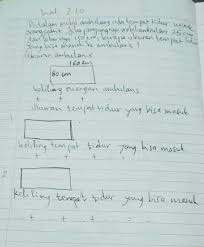 hal 210
Didalam mobil ambulans ada tempat tidur untuk
yang sakit. Jika panjang mobil ambulans 250 cm
dan lebarnya 150 cm, berapa ukuran tempat tidur
yang bisa masuk ke ambulans?
Ukuran ambulans
160 cm
80 cm
keliling ruangan ambulans
+ + +
ukuran tempat tidur yang bisa masuk
1
keliling tempat tidur yang bisa masuk
+ + + =
2
keliling tempat tidur yang bisa masuk
+ + + =